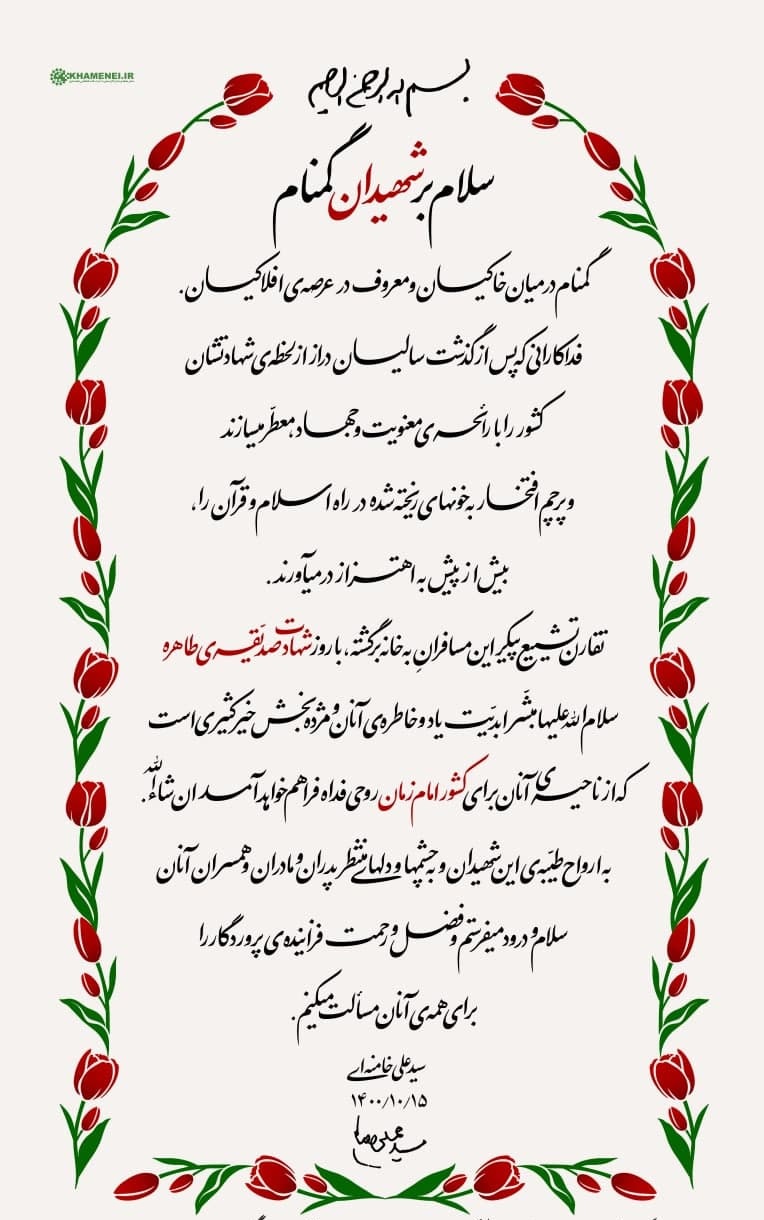 KHAMENEI.IR
بسم الله الرحمن الرحیم
سلام بر شهیدان گمنام
گمنام در میان خاکیان و معروف در عرصه‌ی افلاکیان.
فداکارانی که پس از گذشت سالیان دراز از لحظه‌ی شهادتشان
کشور را با رائحه‌ی معنویت و جهاد، معطّر میسازند
و پرچم افتخار به خونهای ریخته شده در راه اسلام و قرآن را،
بیش از پیش به اهتزاز درمیآورند.
تقارن تشییع پیکر این مسافرانِ به خانه برگشته، با روز شهادت صدّیقه‌ی طاهره
سلام‌الله‌علیها مبشَّر ابدیّت یاد و خاطره‌ی آنان و مژده‌بخش خیر کثیری است
که از ناحیه‌ی آنان برای کشور امام زمان روحی فداه فراهم خواهد آمد ان شاءالله.
به ارواح طیّبه‌ی این شهیدان و به چشمها و دلهای منتظر پدران و مادران و همسران آنان
سلام و درود میفرستم و فضل و رحمت فزاینده‌ی پروردگار را
برای همه‌ی آنان مسألت میکنم.
سید علی خامنه‌ای
۱۴۰۰/۱۰/۱۵